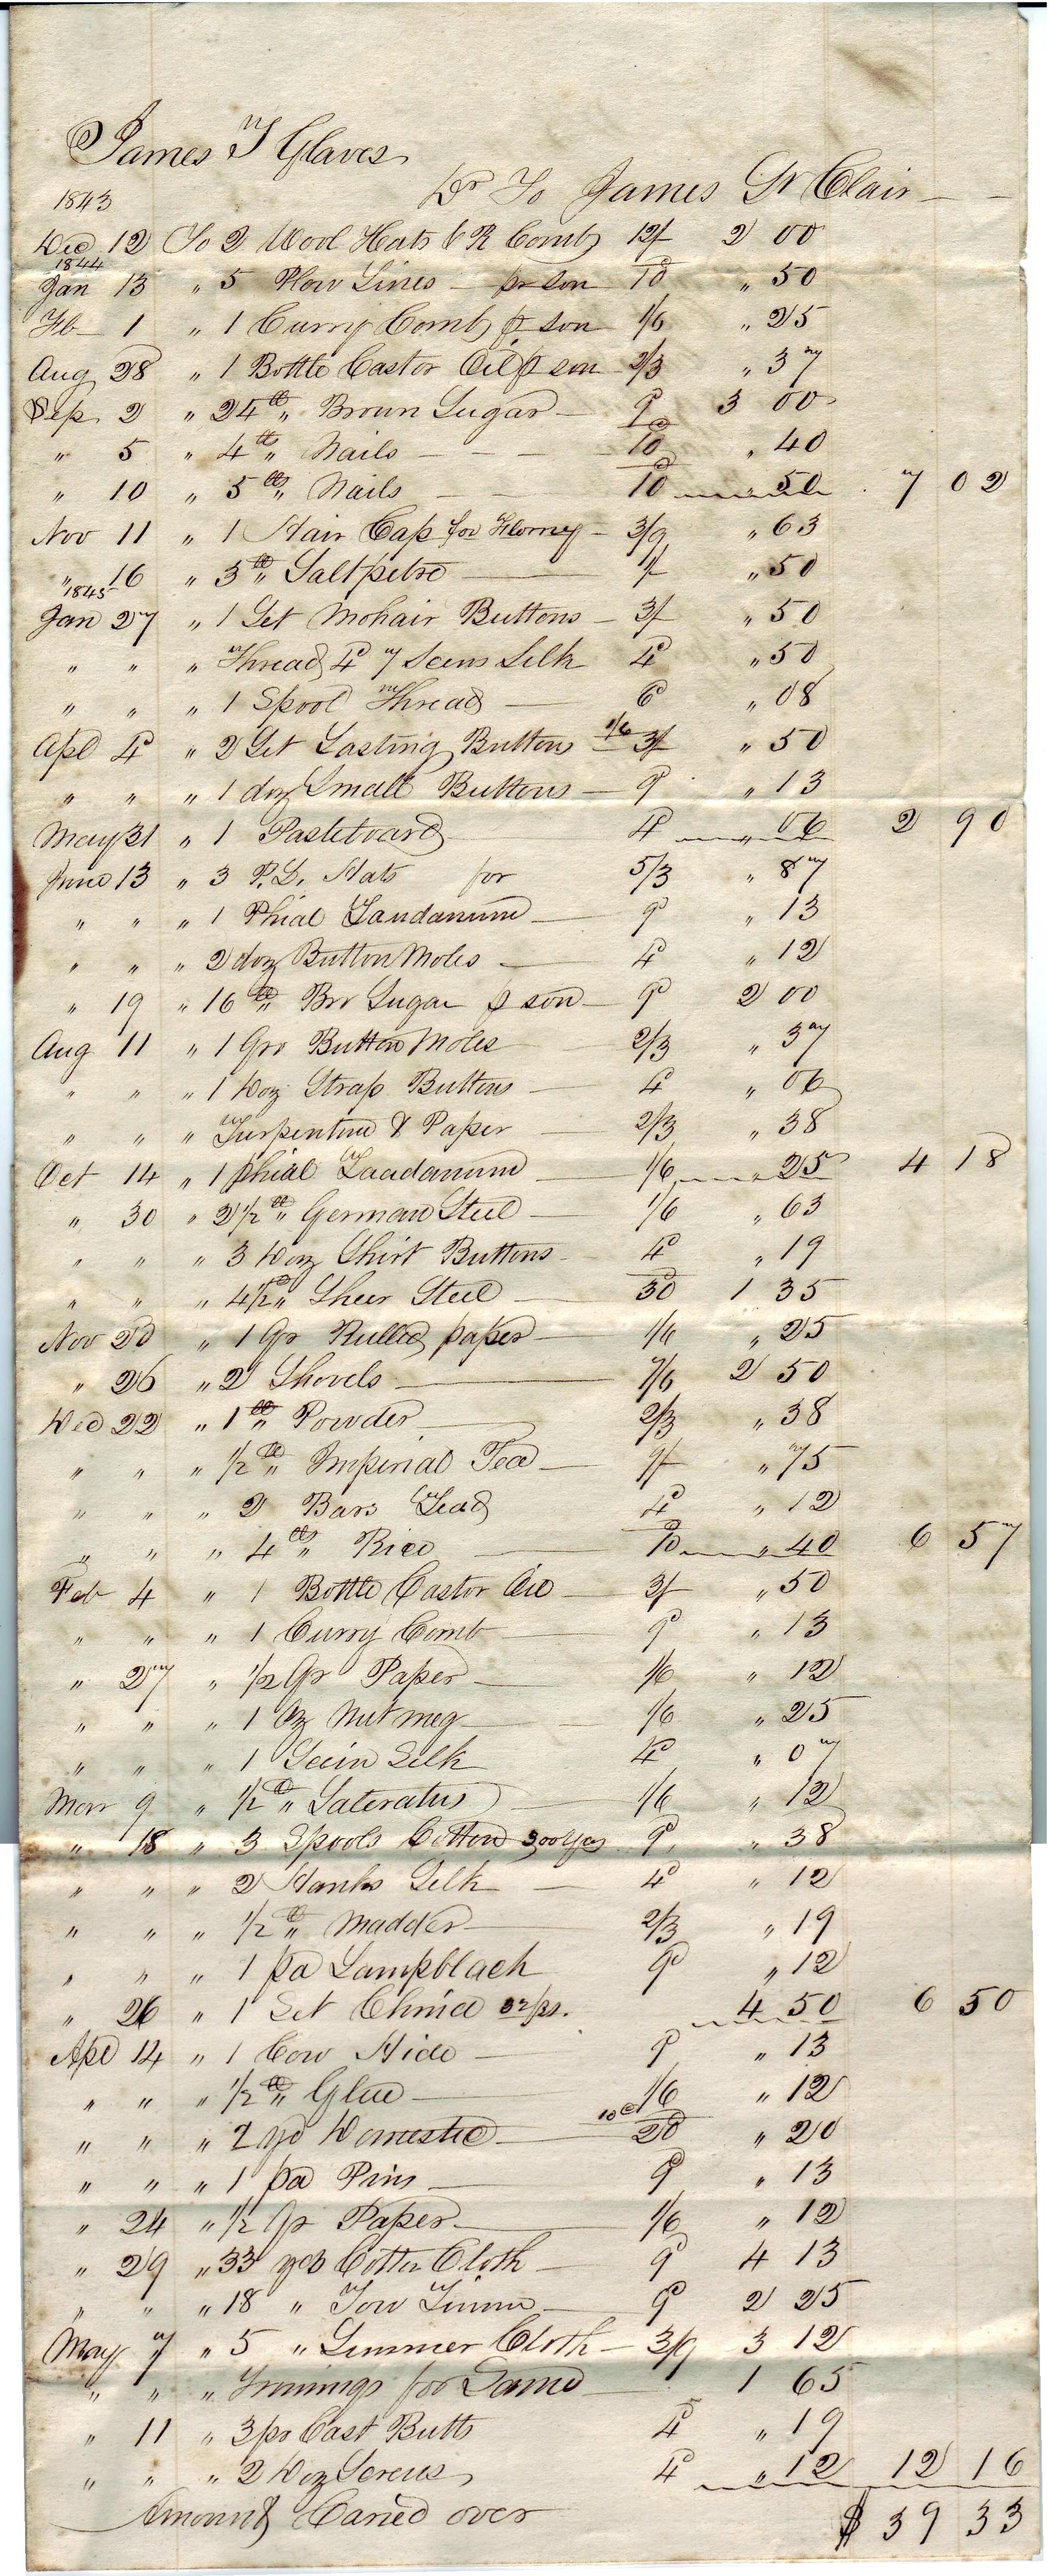 James T Glaves
Dr To James St Clair
1843
Dec 12 To 2 Wool Hats & R Comb 12/ 2 00
1844
Jan 13 " 5 Plow Lines pr son 10 " 50
Fb 1 " 1 Curry Comb p son 1/6 " 25
Aug 28 " 1 Bottle Castor Oil p son 2/3 " 37
Sep 2 " 24 lb " Broun Sugar 9d 3 00
" 5 " 4 lb " Nails 10 " 40
" 10 " 5 lb " Nails 10 " 50 7 02
Nov 11 " 1 Hair Cap for 3/9 " 63
" 16 " 3 lb " Saltpetre 1/ " 50
1845
Jan 27 " 1 Set Mohair Buttons 3/ " 50
" " " Thread 4d 7 Sceins Silk 4d " 50
" " " 1 Spool Thread 6d " 08
Apl 4 " 2 Set Lasting Buttons 1/6 3/ " 50
" " " 1 doz Small Buttons 9 " 13
May 31 " 1 Pasteboard 4d " 06 2 90
June 13 " 3 P. L. Hats for 5/3 " 87
" " " 1 Phial Laudanum 9d " 13
" " " 2 doz Button Moles 4d " 12
" 19 " 16 lb " Brr Sugar p son 9d 2 00
Aug 11 " 1 Gro Button Moles 2/3 " 37
" " " 1 Doz Strap Buttons 4d " 06
" " " Turpentine & Paper 2/3 " 38
Oct 14 " 1 phial Laadanum 1/6 " 25 4 18
" 30 " 2 1/2 lb " German Steel 1/6 " 63
" " " 3 Doz Shirt Buttons 4d " 19
" " " 4 1/2 " Sheer Steel 30 1 35
Nov 20 " 1 Qr Rulled paper 1/6 " 25
" 26 " 2 Shovels 7/6 2 50
Dec 22 " 1 lb " Powder 2/3 " 38
" " " 1/2 lb " Imperial Tea 9/ " 75
" " " 2 Bars Lead 4d " 12
" " " 4 lb " Rice 10 " 40 6 57
Feb 4 " 1 Bottle Castor Oil 3/ " 50
" " " 1 Curry Comb 9d " 13
" 27 " 1/2 Qr Paper 1/6 " 12
" " " 1 Oz Nutmeg 1/6 " 25
" " " 1 Scein Silk 4d " 07
Marr 9 " 1/2 lb " Saleratus 1/6 " 12
" 18 " 3 Spools Cotton 300 yds 9d " 38
" " " 2 Hanks Silk 4d " 12
" " " 1/2 lb " Madder 2/3 " 19
" " " 1 pa Lampblack 9d " 12
" 26 " 1 Set China 32 ps. 4 50 6 50
Apl 14 " 1 Cow Hide 9d " 13
" " " 1/2 lb " Glue 1/6 " 12
" " " 2 yd Domestic 10 c 20 " 20
" " " 1 pa Pins 9d " 13
" 24 " 1/2 Qr Paper 1/6 " 12
" 29 " 33 yds Cotton Cloth 9d 4 13
" " " 18 " Tow Linnen 9d 2 25
May 7 " 5 " Summer Cloth 3/9 3 12
" " " Trimings for Same 1 65
" 11 " 3 pr Cast Butts 4d " 19
" " " 2 Doz Screws 4d " 12 12 16
Amount Caried over $ 39 33